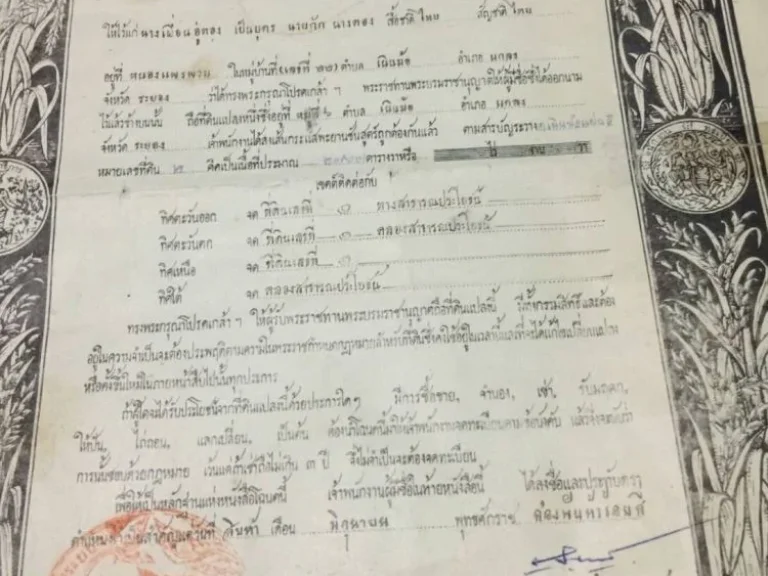 ให้ไว้แก่ นางเพื่อน อู่ทอง เป็นบุตร นายกัก นางทอง เชื้อชาติ ไทย สัญชาติ ไทย
อยู่ที่ หนองแพงพวย ในหมู่บ้านที่ ตำบล เนินฆ้อ อำเภอ แกลง
จังหวัด ระยอง ว่าได้ทรงพระกรุณาโปรดเกล้า ฯ พระราชทานพระบรมราชานุญาตให้ผู้มีชื่อซึ่งได้ออกนาม
ไว้แล้วข้างบนนั้น ถือที่ดินแปลงหนึ่งซึ่งอยู่ที่ หมู่ที่ ตำบล เนินฆ้อ อำเภอ แกลง
จังหวัด ระยอง เจ้าพนักงานได้ลงเส้นกระแสพะยานชันสูตร์ถูกต้องกันแล้ว ตามสารบัญระวาง
หมายเลขที่ดิน ๒ คิดเป็นเนื้อที่ประมาณ ตารางวาหรือ ไร่ งาน วา
เขตต์ติดต่อกับ
ทิศตะวันออก จด ที่ดินเลขที่ ๑ ทางสาธารณประโยชน์
ทิศตะวันตก จด ที่ดินเลขที่ ๓ คลองสาธารณประโยชน์
ทิศเหนือ จด ที่ดินเลขที่ ๑
ทิศใต้ จด คลองสาธารณประโยชน์
ทรงพระกรุณาโปรดเกล้า ฯ ให้ผู้รับพระราชทานพระบรมราชานุญาตถือที่ดินแปลงนี้ มีทั้งกรรมสิทธิ์และต้อง
อยู่ในความจำเป็นจะต้องประพฤติตามความในพระราชกำหนดกฎหมายสำหรับที่ดินซึ่งคงใช้อยู่ในเวลานี้และที่จะได้แก้ไขเปลี่ยนแปลง
หรือตั้งขึ้นใหม่ในภายหน้าสืบไปนั้นทุกประการ
ถ้าผู้ใดจะได้รับประโยชน์จากที่ดินแปลงนี้ด้วยประการใดๆ มีการซื้อขาย, จำนอง, เช่า, รับมฤดก,
ให้ปัน, ไถ่ถอน, แลกเปลี่ยน, เป็นต้น ต้องนำโฉนดนี้มาให้เจ้าพนักงานจดทะเบียนตามข้อบังคับ แล้วจึ่งจะนับว่า
การนั้นชอบด้วยกฎหมาย เว้นแต่ถ้าเช่าถือไม่เกิน ๓ ปี จึงไม่จำเป็นจะต้องจดทะเบียน
เพื่อให้เป็นหลักฐานแห่งหนังสือโฉนดนี้ เจ้าพนักงานผู้มีชื่อในท้ายหนังสือนี้ ได้ลงชื่อและประทับตรา
ตำแหน่งมาเป็นสำคัญแต่วันที่ สิบห้า เดือน มิถุนายน พุทธศักราช